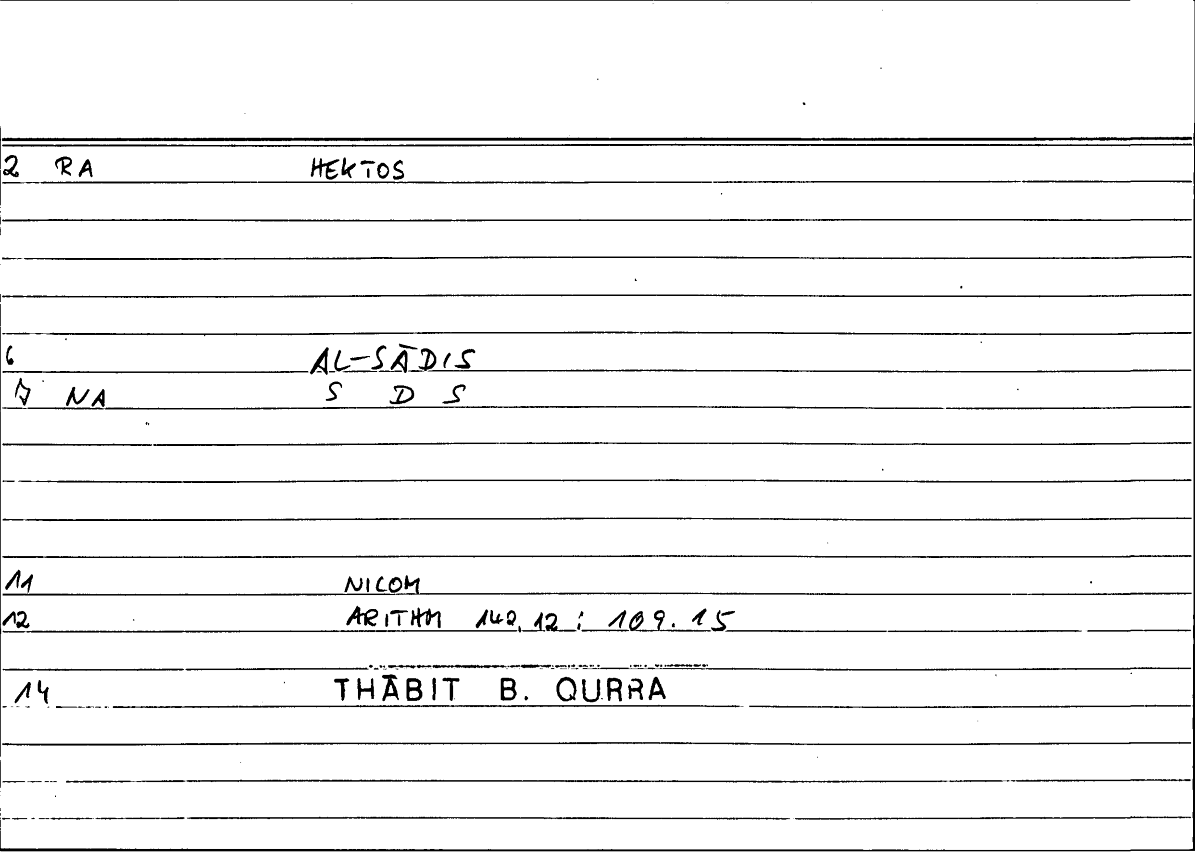 2 RA HEKTOS
6 AL-SĀDIS
7 NA S D S
11 NICOM
12 ARITHM 142,12 : 109.15
14 THĀBIT B. QURRA